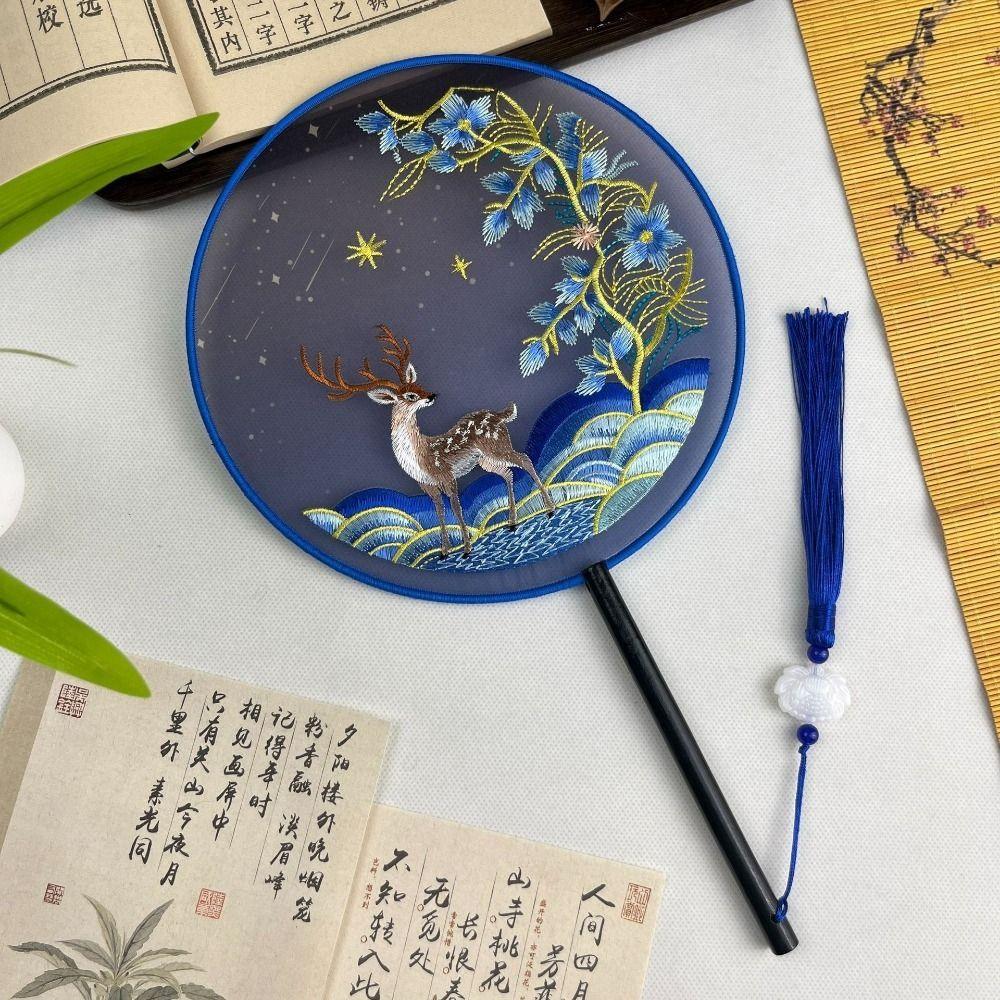 铸
之
字
二字
其内
选
校
夕阳楼外晚烟笼
粉香融 淡眉峰
记得年时
相见画屏中
只有关山今夜月
千里外 素光同
人间四月
芳菲
山寺桃花
长恨春
无觅处
不知转入此